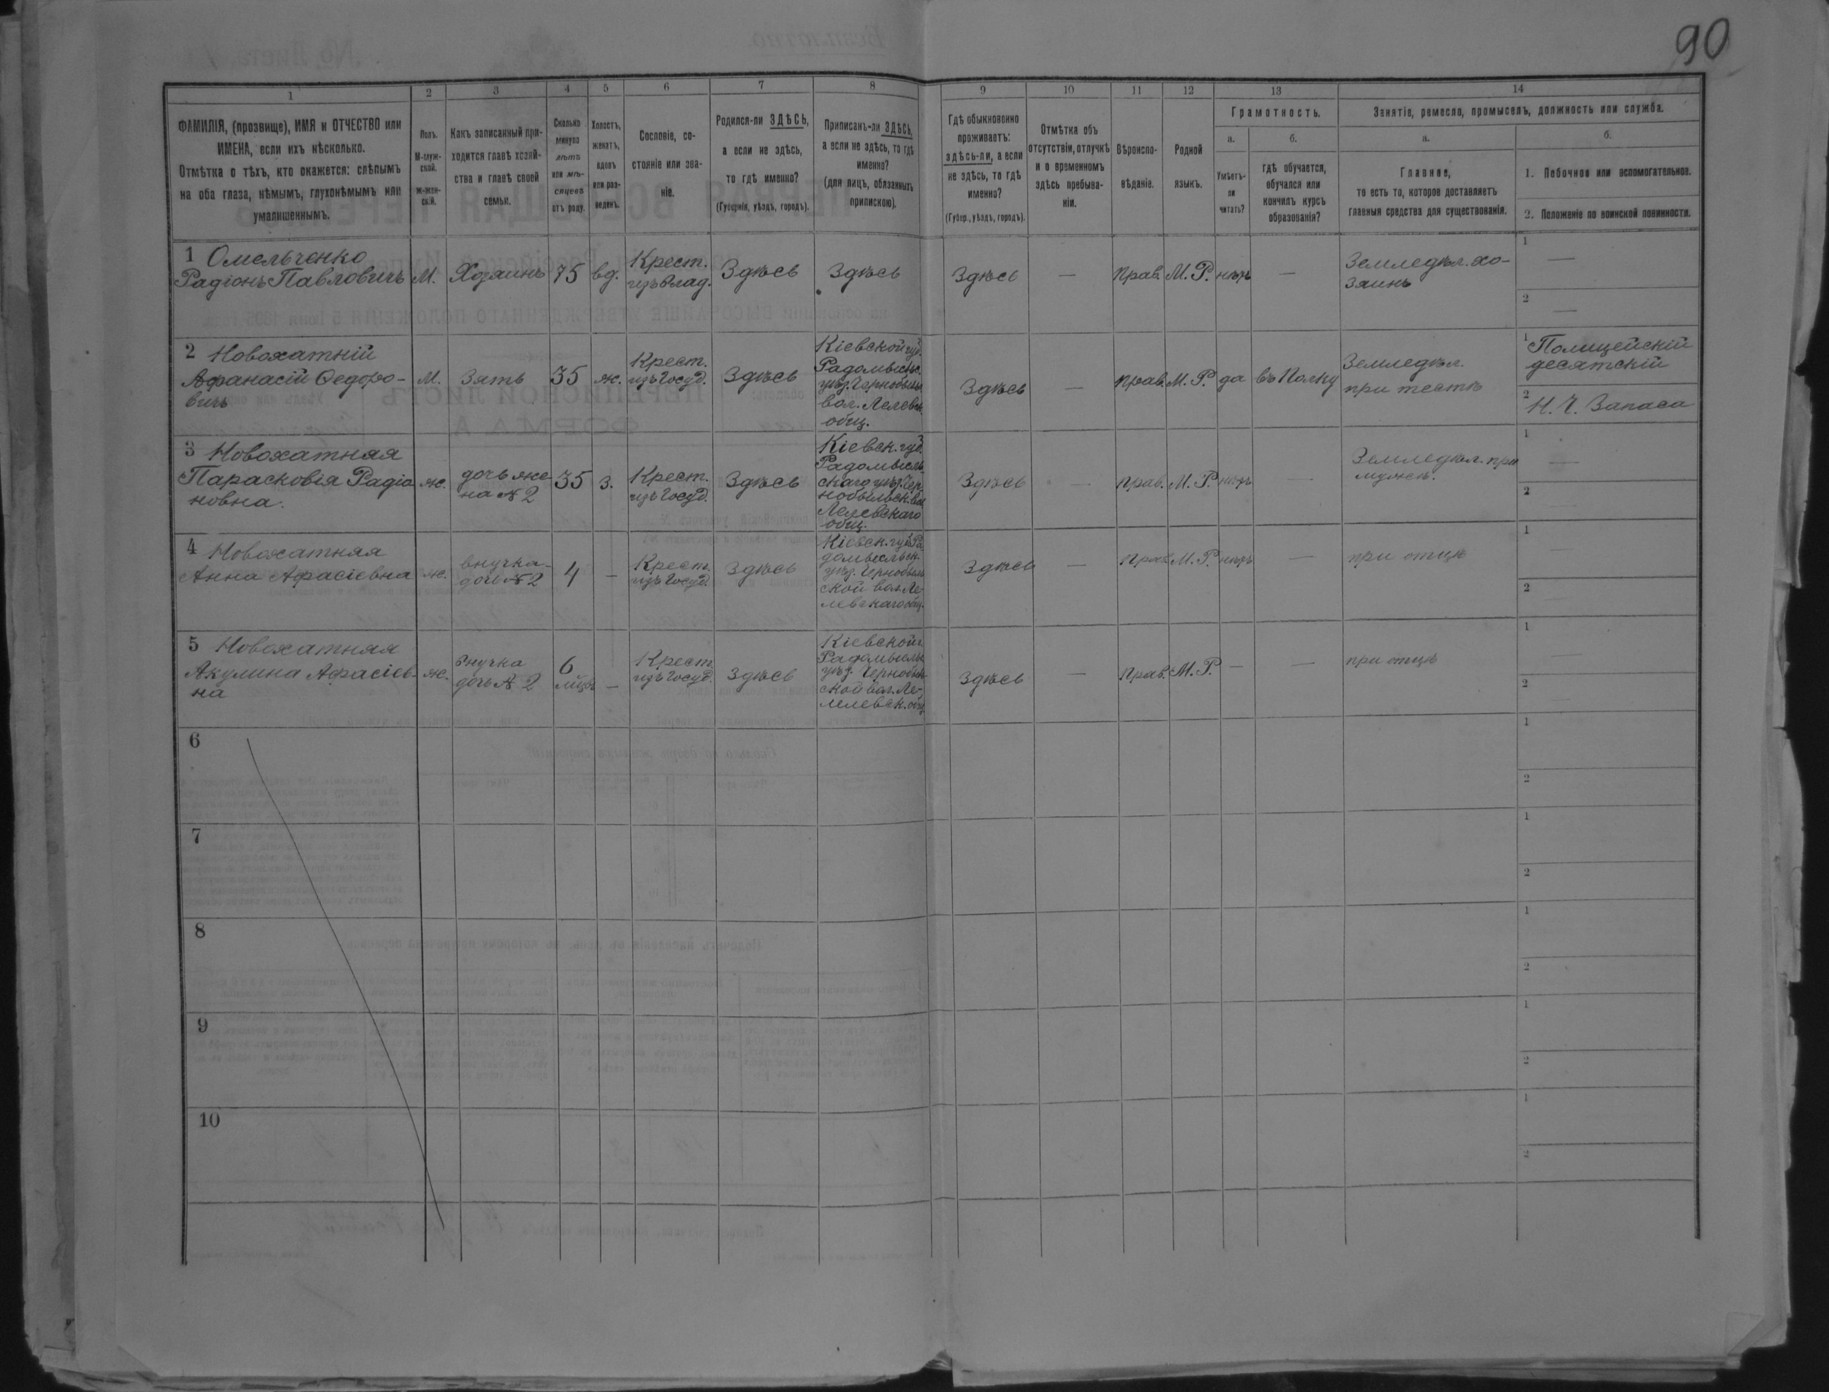 90
1 2 3 4 5 6 7 8 9 10 11 12 13 14
ФАМИЛІЯ, (прозвище), ИМЯ и ОТЧЕСТВО или
ИМЕНА, если ихъ нѣсколько.
Отмѣтка о тѣхъ, кто окажется: слѣпымъ
на оба глаза, нѣмымъ, глухонѣмымъ или
умалишеннымъ.
Полъ.
М-муж-
ской.
Ж-жен-
скій.
Какъ записанный при-
ходится главѣ хозяй-
ства и главѣ своей
семьи.
Сколько
минуло
лѣтъ
или мѣ-
сяцевъ
отъ роду.
Холостъ,
женатъ,
вдовъ
или раз-
веденъ.
Сословіе, со-
стояніе или зва-
ніе.
Родился-ли ЗДѢСЬ,
а если не здѣсь,
то гдѣ именно?
(Губернія, уѣздъ, городъ).
Приписанъ-ли ЗДѢСЬ,
а если не здѣсь, то гдѣ
именно?
(для лицъ, обязанныхъ
припискою).
Гдѣ обыкновенно
проживаетъ:
здѣсь-ли, а если
не здѣсь, то гдѣ
именно?
(Губер., уѣздъ, городъ).
Отмѣтка объ
отсутствіи, отлучкѣ
и о временномъ
здѣсь пребыва-
ніи.
Вѣроиспо-
вѣданіе.
Родной
языкъ.
Грамотность.
а.
Умѣетъ-
ли
читать?
б.
гдѣ обучается,
обучался или
кончилъ курсъ
образованія?
Занятіе, ремесло, промыселъ, должность или служба.
а.
Главное,
то есть то, которое доставляетъ
главныя средства для существованія.
б.
1. Побочное или вспомогательное.
2. Положеніе по воинской повинности.
1 Омельченко
Радіонъ Павловичъ
М.
Хозяинъ
75
вд.
Крест.
изъ влад.
Здѣсь
Здѣсь
Здѣсь
—
Прав.
М. Р.
нѣтъ
—
Земледѣл. хо-
зяинъ
1 —
2 —
2 Новохатній
Афанасій Ѳедоро-
вичъ
М.
Зять
35
ж.
Крест.
изъ Госуд.
Здѣсь
Кіевской губ.
Радомысль.
уѣз. Чернобыль
вол. Лелев.
общ.
Здѣсь
—
прав.
М. Р.
да
въ Полку
Земледѣл.
при тестѣ
1 Полицейскій
десятскій
2 Н. Ч. Запаса
3 Новохатная
Парасковія Радіо
новна.
ж.
дочь же
на № 2
35
з.
Крест.
изъ Госуд.
Здѣсь
Кіевск. губ.
Радомысль
скаго уѣз. Чер
нобыльск. вол.
Лелевскаго
общ.
Здѣсь
-
прав.
М. Р.
нѣтъ
—
Земледѣл. при
мужѣ.
1 —
2
4 Новохатная
Анна Афасіевна
ж.
внучка-
дочь № 2
4
—
Крест.
изъ Госуд.
Здѣсь
Кіевск. губ. Ра
домысльск.
уѣз. Чернобыль
ской вол. Ле
левскаго общ.
Здѣсь
—
Прав.
М. Р.
нѣтъ
—
при отцѣ
1 —
2
5 Новохатная
Акулина Афасіев-
на
ж.
Внучка
дочь № 2
6
мѣс.
—
Крест.
изъ Госуд.
Здѣсь
Кіевской г.
Радомысль
уѣз. Чернобыль
ской вол. Ле-
лелевск. общ.
Здѣсь
—
Прав.
М. Р.
—
—
при отцѣ
1 —
2
6
1
2
7
1
2
8
1
2
9
1
2
10
1
2